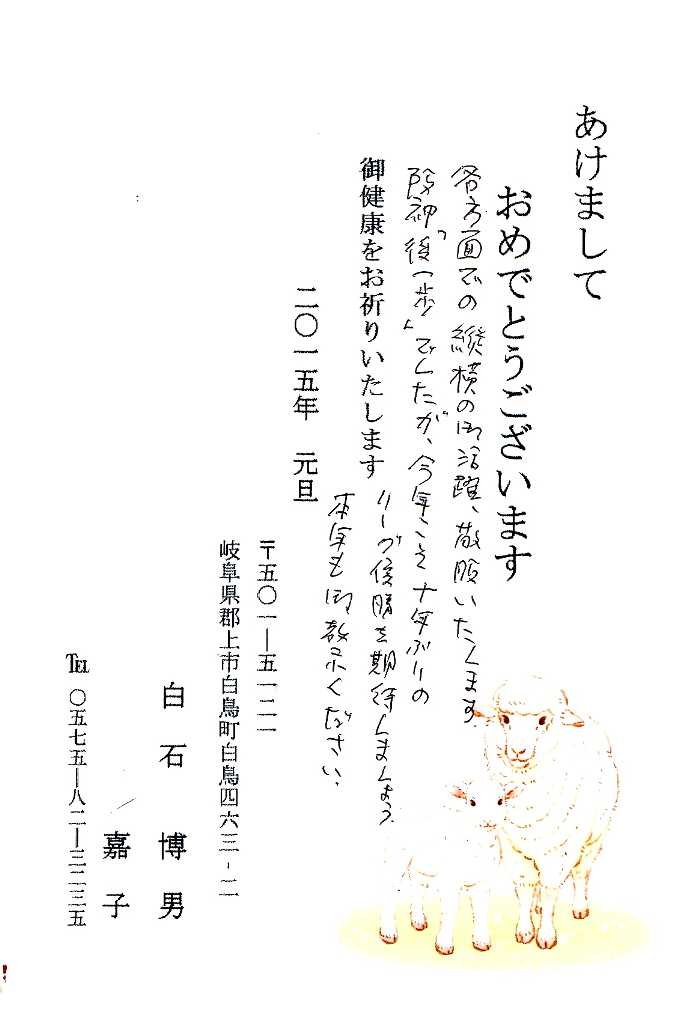 あけまして
おめでとうございます
各方面での縦横の御活躍、敬服いたします。
阪神「後一歩」でしたが、今年こそ十年ぶりの
リーグ優勝を期待しましょう。
本年も御教示ください。
御健康をお祈りいたします
二〇一五年　元旦
〒五〇一―五一二一
岐阜県郡上市白鳥町白鳥四六三-二
白石　博男
嘉子
℡　〇五七五―八二―三二三五